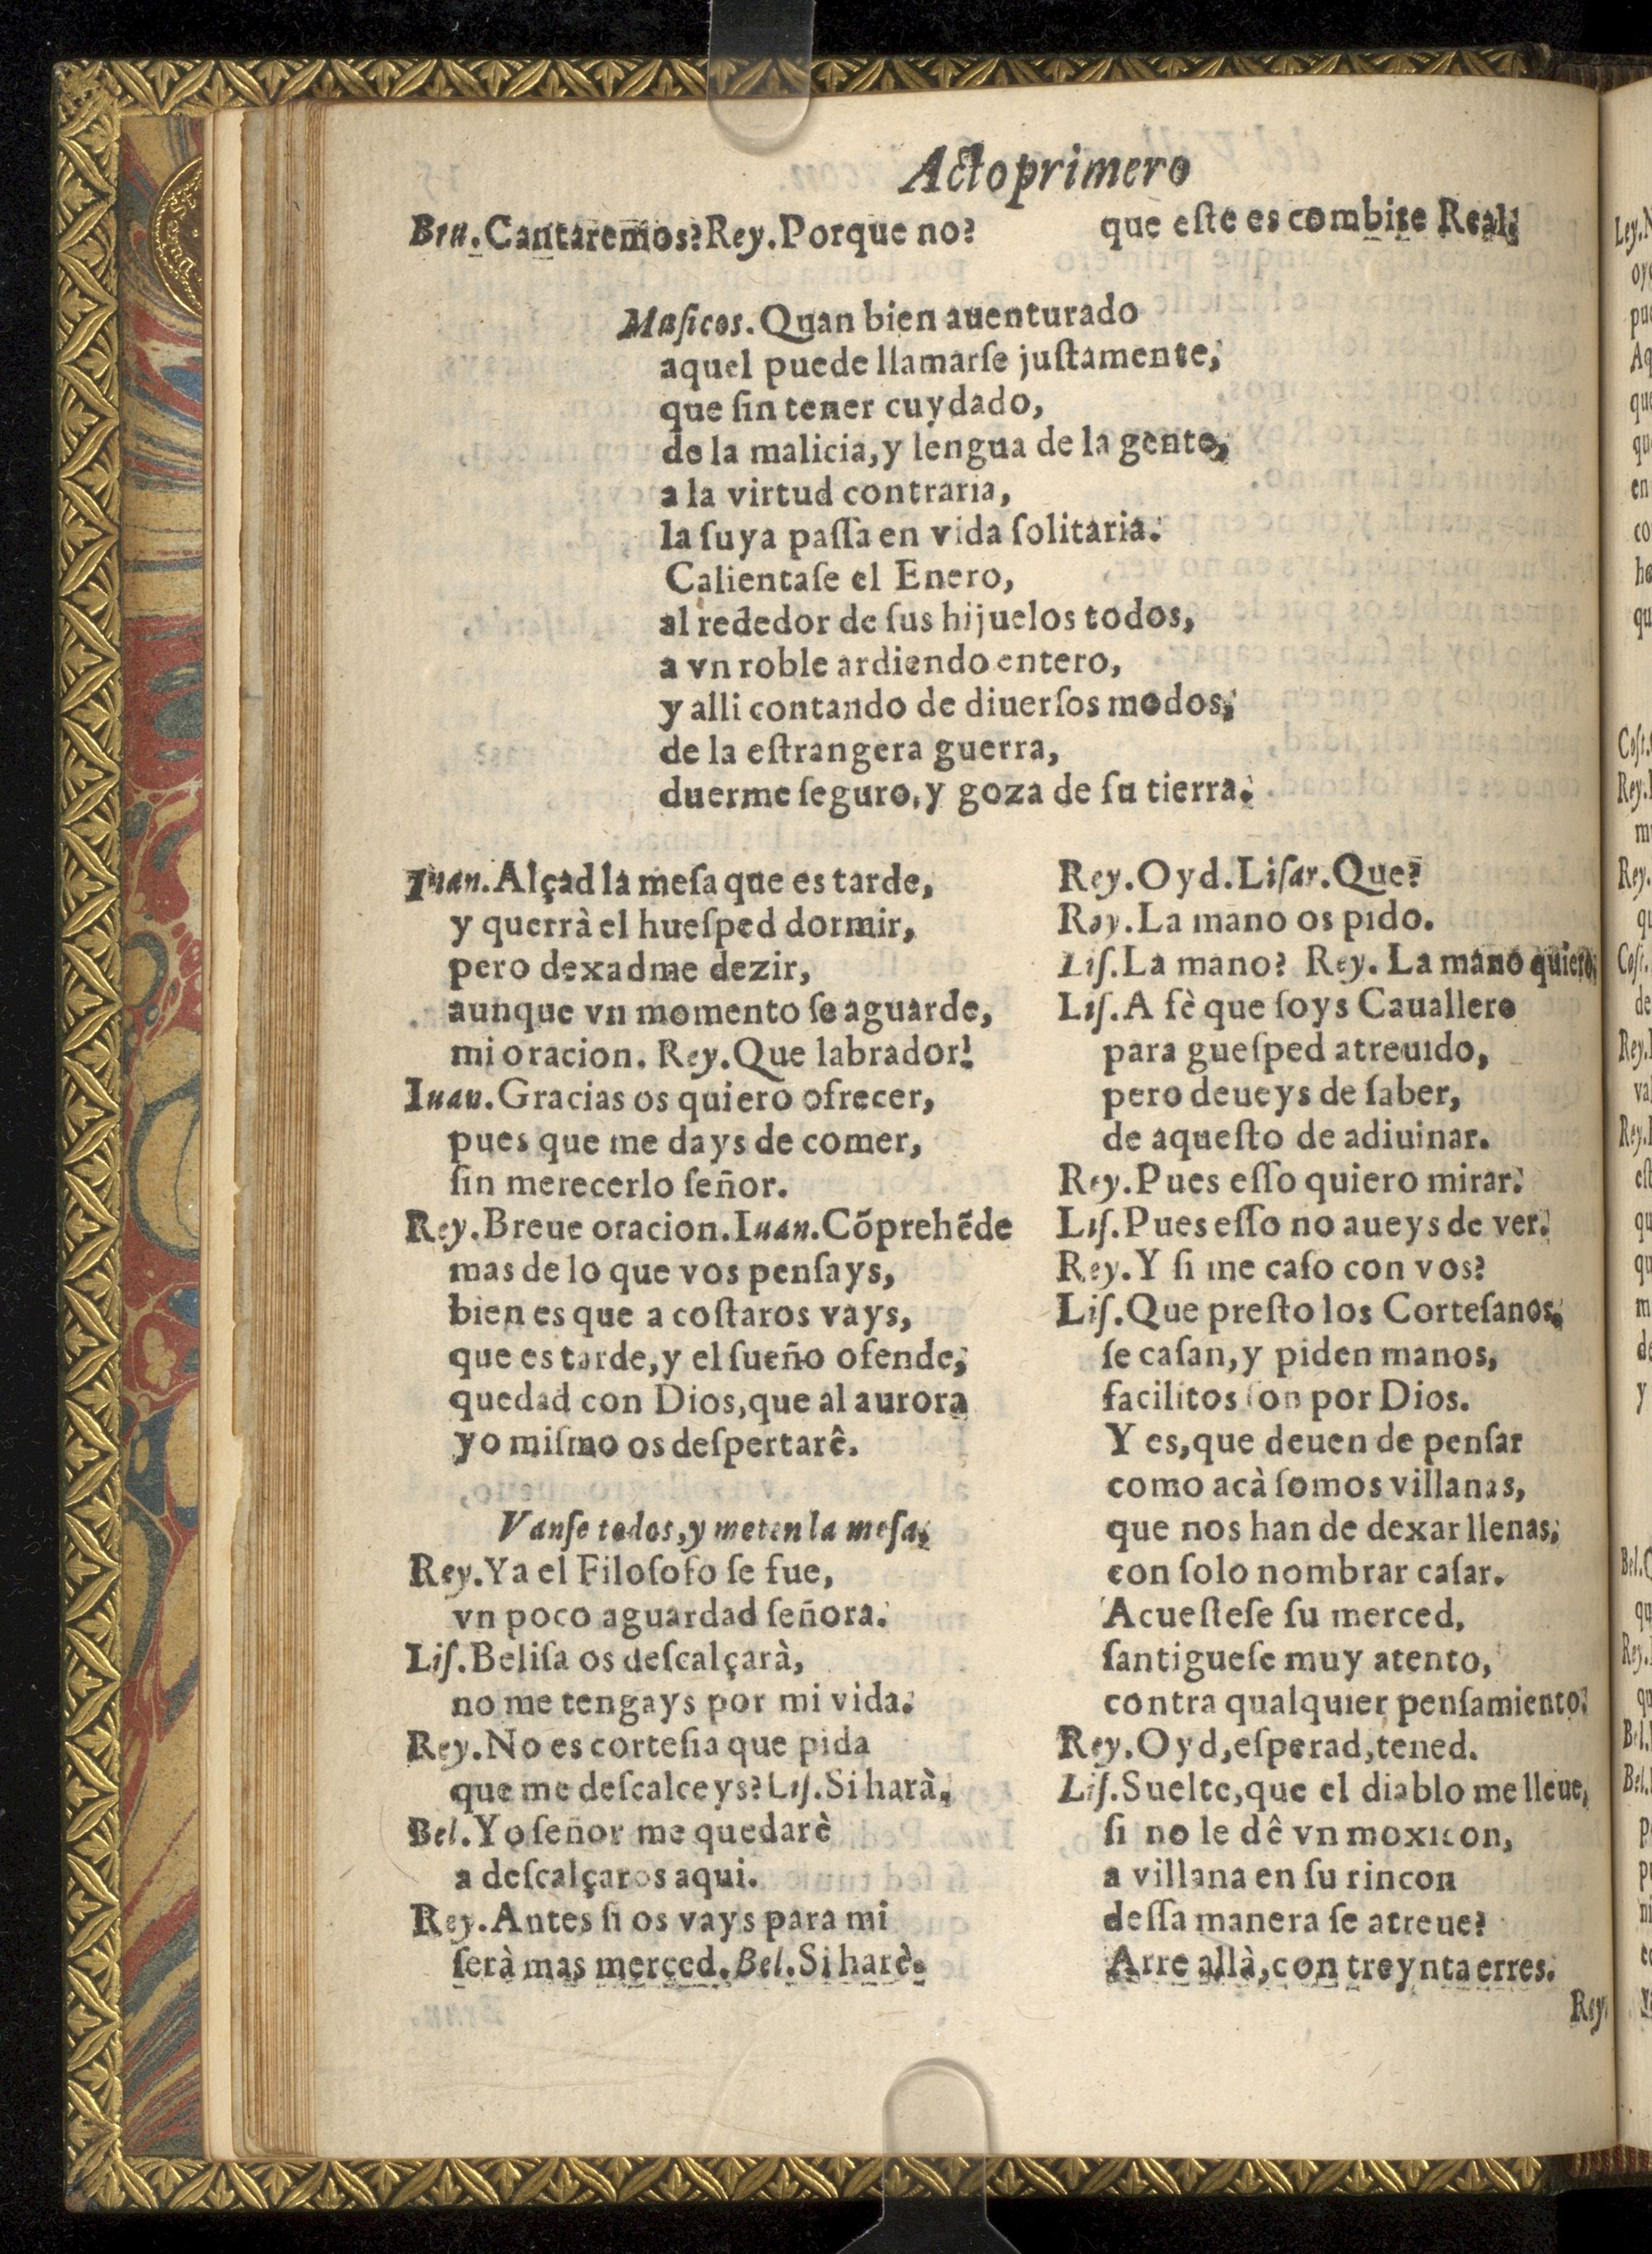 Acto primero
Bru.Cantaremos?Rey.Porque no?
que eſte es combite Real;
Muſicos.Quan bien auenturado
aquel puede llamarſe juſtamente,
que ſin tener cuydado,
de la malicia,y lengua de la gente,
a la virtud contraria,
la ſuya paſſa en vida ſolitaria.
Calientaſe el Enero,
al rededor de ſus hijuelos todos,
a vn roble ardiendo entero,
y alli contando de diuerſos modos,
de la eſtrangera guerra,
duerme ſeguro,y goza de ſu tierra.
Iuan.Alçad la meſa que es tarde,
y querrà el hueſped dormir,
pero dexadme dezir,
aunque vn momento ſe aguarde,
mi oracion. Rey.Que labrador!
Iuan.Gracias os quiero ofrecer,
pues que me days de comer,
ſin merecerlo ſeñor.
Rey.Breue oracion.Iuan.Cõprehẽde
mas de lo que vos penſays,
bien es que a coſtaros vays,
que es tarde,y el ſueño ofende,
quedad con Dios,que al aurora
yo miſmo os deſpertarê.
Vanſe todos,y meten la meſa.
Rey.Ya el Filoſofo ſe fue,
vn poco aguardad ſeñora.
Liſ.Beliſa os deſcalçarà,
no me tengays por mi vida.
Rey.No es corteſia que pida
que me deſcalceys?Liſ.Si harà.
Bel.Yo ſeñor me quedarè
a deſcalçaros aqui.
Rey.Antes ſi os vays para mi
ſerà mas merced.Bel.Si harè.
Rey.Oyd.Liſar.Que?
Rey.La mano os pido.
Liſ.La mano? Rey. La mano quiero,
Liſ.A fè que ſoys Cauallero
para gueſped atreuido,
pero deueys de ſaber,
de aqueſto de adiuinar.
Rey.Pues eſſo quiero mirar.
Liſ.Pues eſſo no aueys de ver.
Rey.Y ſi me caſo con vos?
Liſ.Que preſto los Corteſanos,
ſe caſan,y piden manos,
facilitos ſon por Dios.
Y es,que deuen de penſar
como acà ſomos villanas,
que nos han de dexar llenas,
con ſolo nombrar caſar.
Acueſteſe ſu merced,
ſantigueſe muy atento,
contra qualquier penſamiento.
Rey.Oyd,eſperad,tened.
Liſ.Suelte,que el diablo me lleue,
ſi no le dê vn moxicon,
a villana en ſu rincon
deſſa manera ſe atreue?
Arre allà,con treynta erres.
Rey.